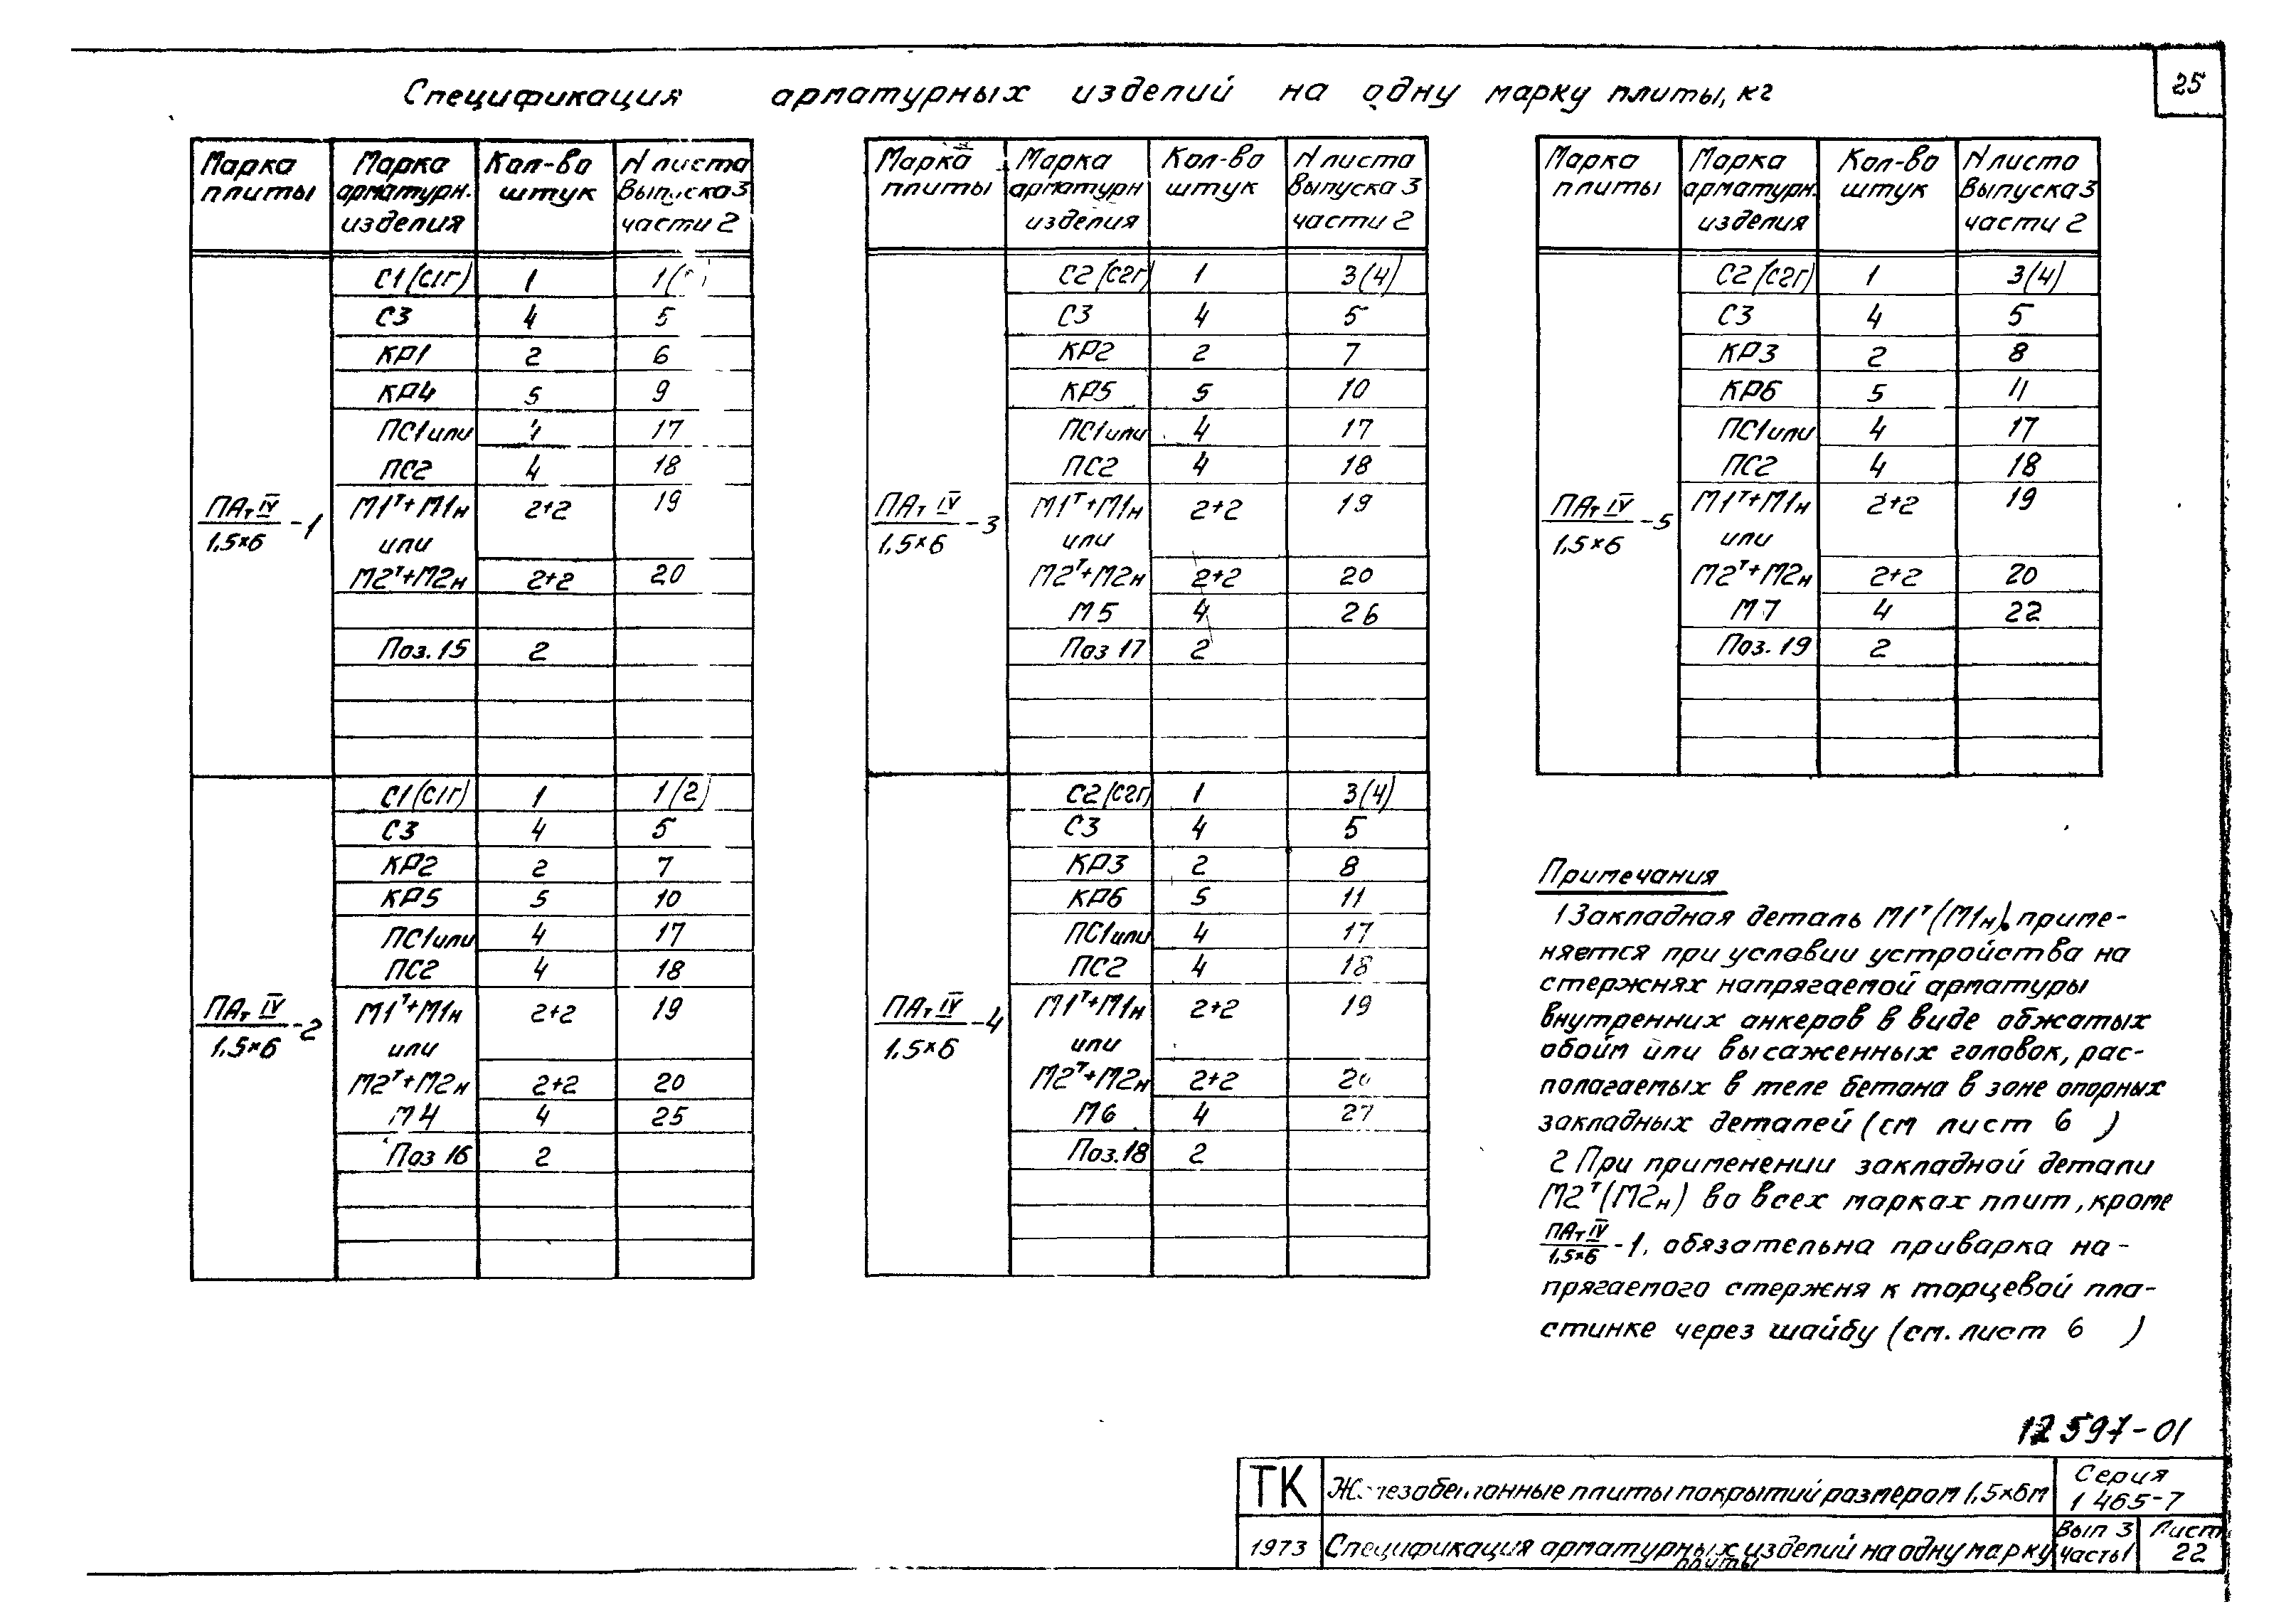 25
Спецификация арматурных изделий на одну марку плиты, кг
Марка плиты | Марка арматурн. изделия | Кол-во штук | N листа Выпуска 3 части 2
ПАт IV/1,5×6 -1
С1(С1г) 1 1(
С3 4 5
КР1 2 6
КР4 5 9
ПС1 или 4 17
ПС2 4 18
М1т+М1н 2+2 19
или
М2т+М2н 2+2 20
Поз.15 2
ПАт IV/1,5×6 -2
С1(С1г) 1 1(2)
С3 4 5
КР2 2 7
КР5 5 10
ПС1 или 4 17
ПС2 4 18
М1т+М1н 2+2 19
или
М2т+М2н 2+2 20
М4 4 25
Поз 16 2
Марка плиты | Марка арматурн изделия | Кол-во штук | N листа Выпуска 3 части 2
ПАт IV/1,5×6 -3
С2(С2г) 1 3(4)
С3 4 5
КР2 2 7
КР5 5 10
ПС1 или 4 17
ПС2 4 18
М1т+М1н 2+2 19
или
М2т+М2н 2+2 20
М5 4 26
Поз 17 2
ПАт IV/1,5×6 -4
С2(С2г) 1 3(4)
С3 4 5
КР3 2 8
КР6 5 11
ПС1 или 4 17
ПС2 4 18
М1т+М1н 2+2 19
или
М2т+М2н 2+2 20
М6 4 27
Поз.18 2
Марка плиты | Марка арматурн. изделия | Кол-во штук | N листа Выпуска 3 части 2
ПАт IV/1,5×6 -5
С2(С2г) 1 3(4)
С3 4 5
КР3 2 8
КР6 5 11
ПС1 или 4 17
ПС2 4 18
М1т+М1н 2+2 19
или
М2т+М2н 2+2 20
М7 4 22
Поз. 19 2
Примечания
1 Закладная деталь М1т(М1н) приме-
няется при условии устройства на
стержнях напрягаемой арматуры
внутренних анкеров в виде обжатых
обойм или высаженных головок, рас-
полагаемых в теле бетона в зоне опорных
закладных деталей (см лист 6 )
2 При применении закладной детали
М2т(М2н) во всех марках плит, кроме
ПАт IV/1,5×6 -1, обязательна приварка на-
прягаемого стержня к торцевой пла-
стинке через шайбу (см. лист 6 )
12597-01
ТК Железобетонные плиты покрытий размером 1,5×6м Серия 1 465-7
1973 Спецификация арматурных изделий на одну марку плиты Вып 3 Часть 1 Лист 22